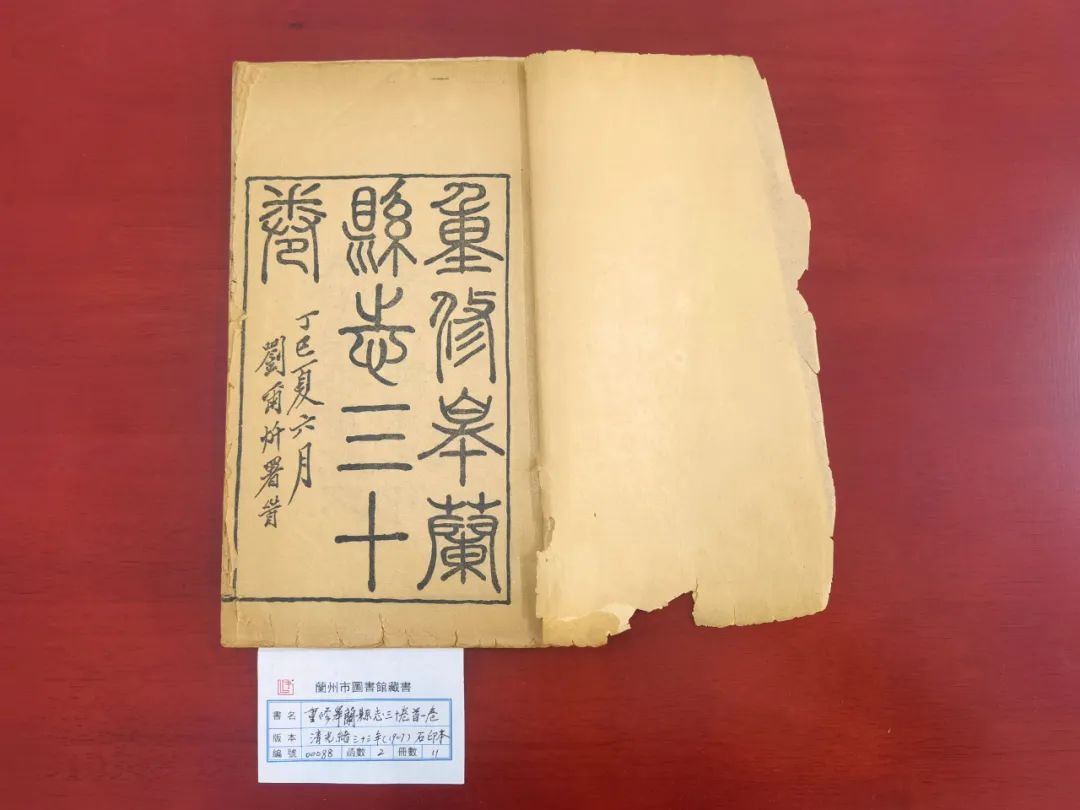 重修皋蘭
縣志三十
卷
丁巳夏六月
劉爾炘署
蘭州市圖書館藏書
書名 重修皋蘭縣志三十卷首一卷
版本 清光緒三十三年(1907)石印本
編號 00088 函數 2 冊數 11